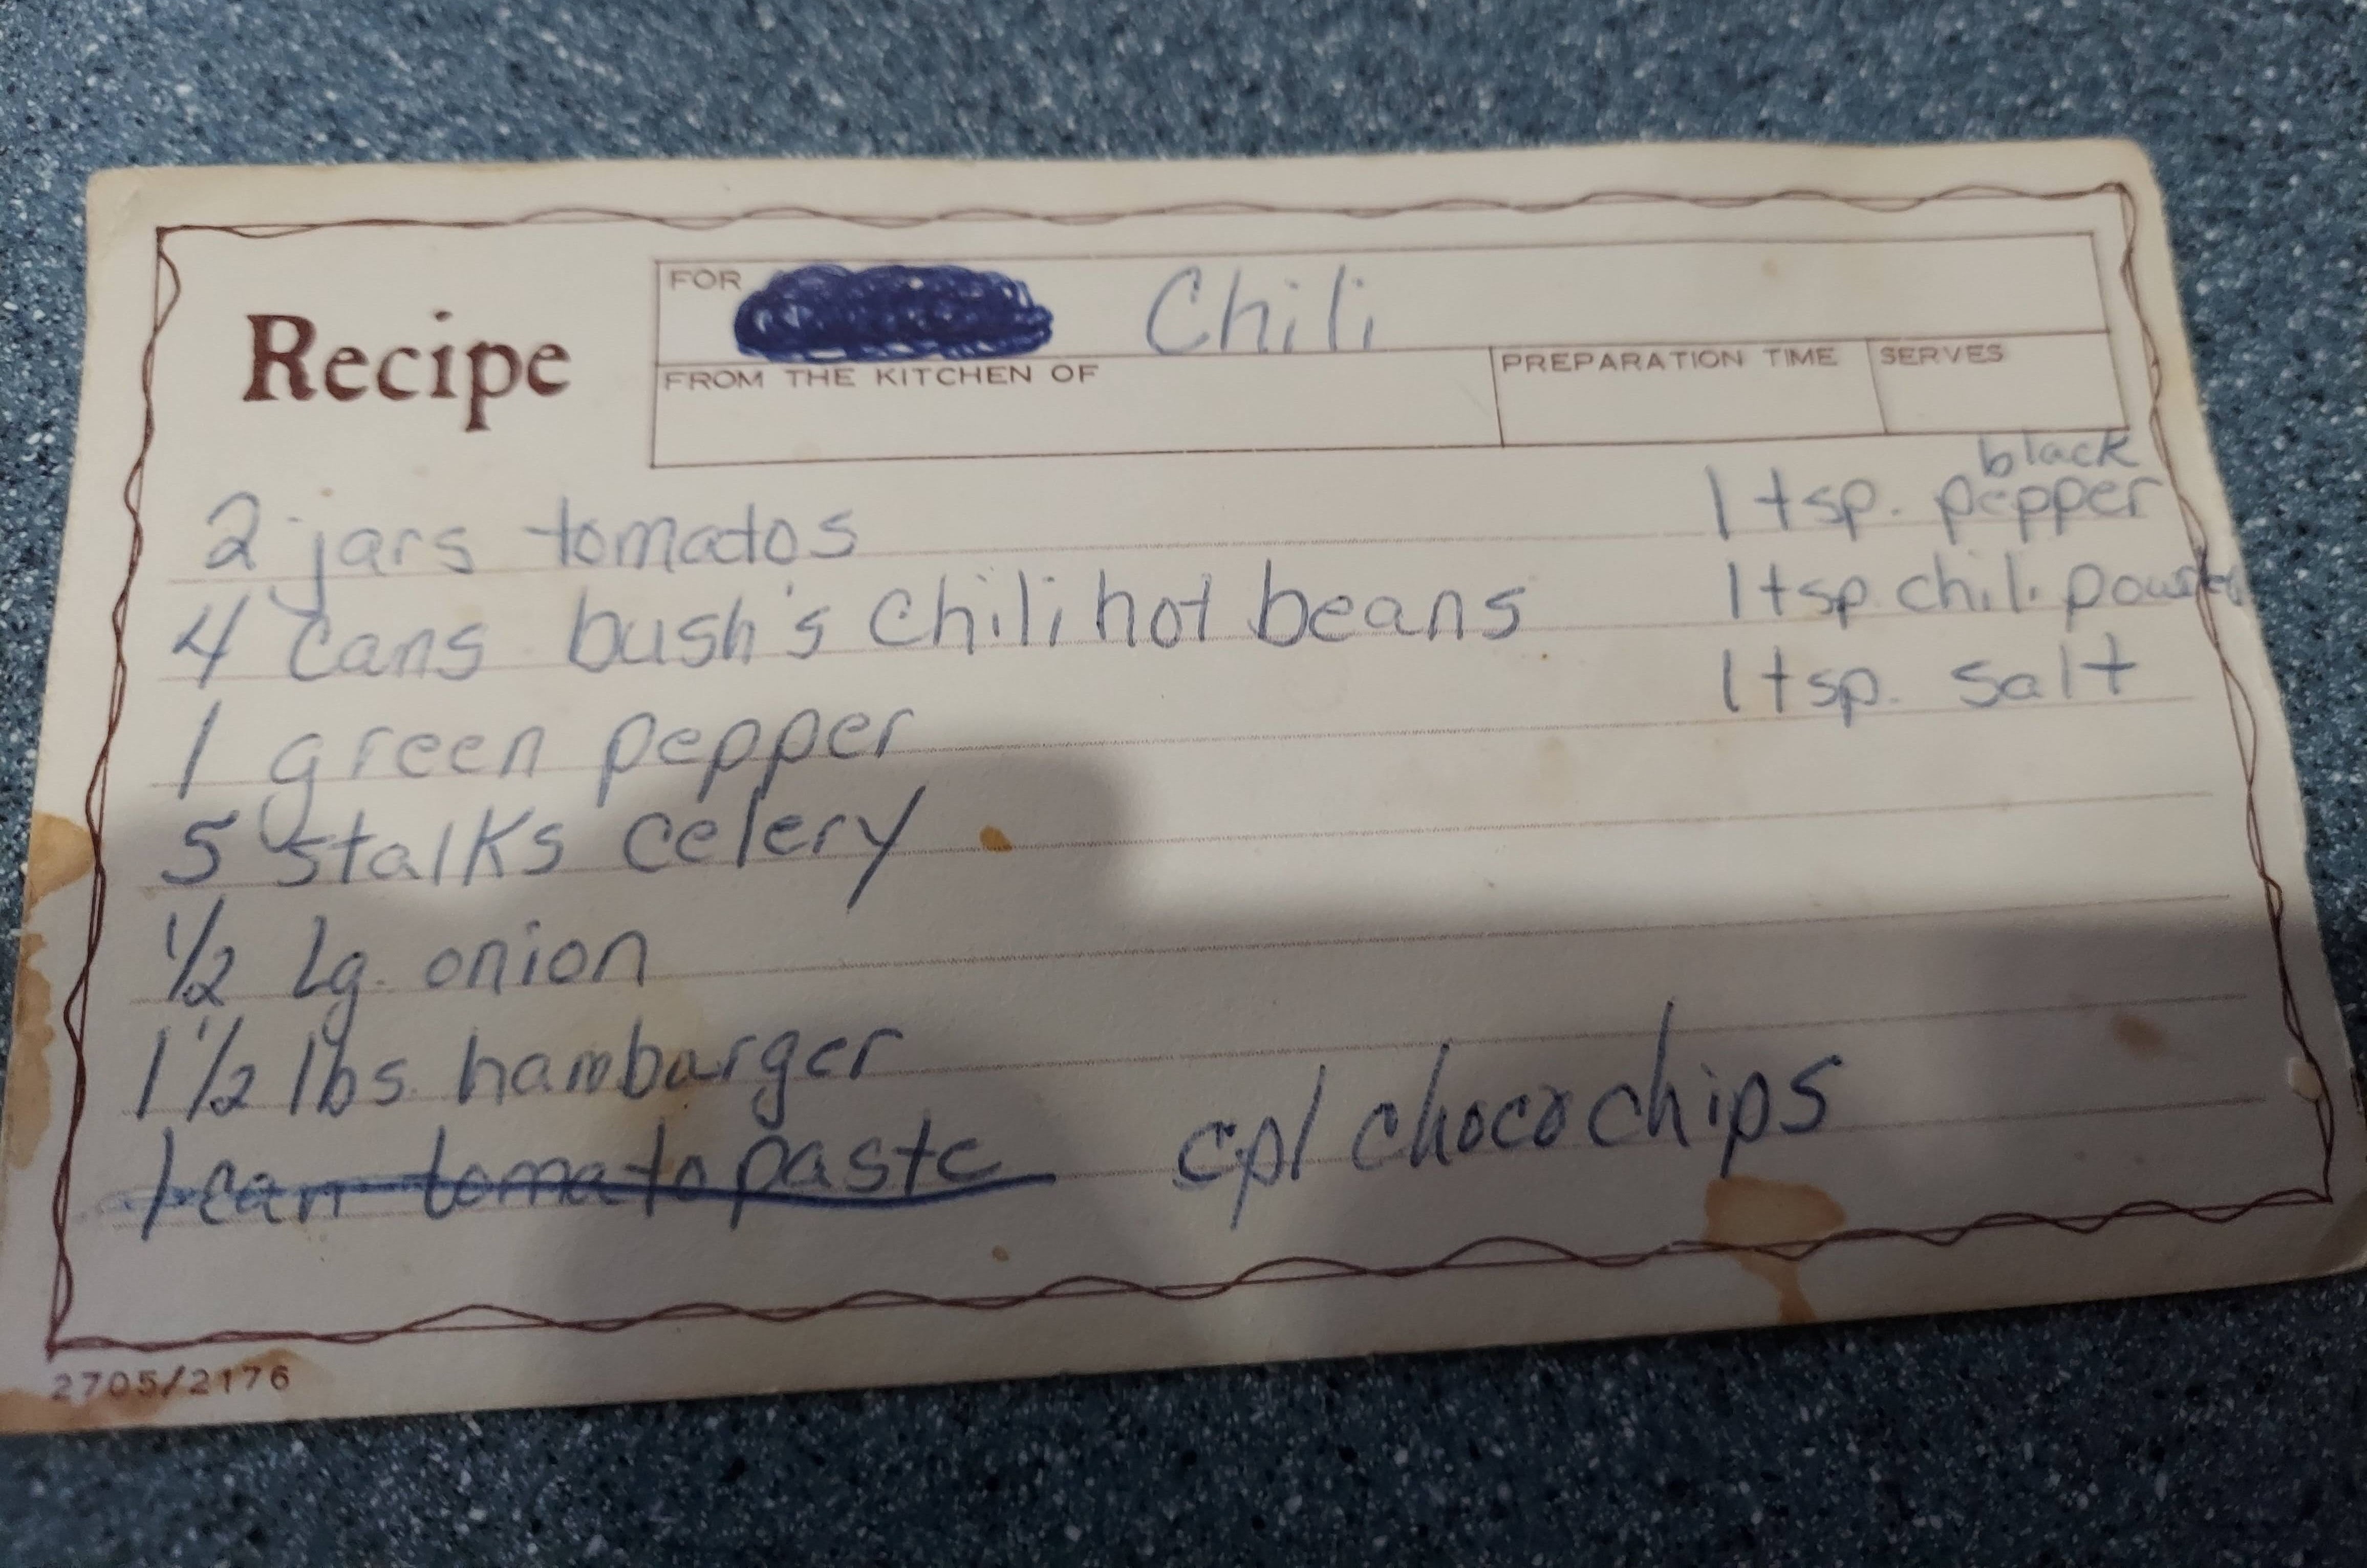 Recipe
FOR Chili
FROM THE KITCHEN OF
PREPARATION TIME
SERVES
2 jars tomatos
4 cans bush's chili hot beans
1 green pepper
5 stalks celery
1/2 Lg. onion
1 1/2 lbs. hamburger
1 can tomato paste
black
1 tsp. pepper
1 tsp chili powder
1 tsp. salt
cpl choco chips
2705/2176